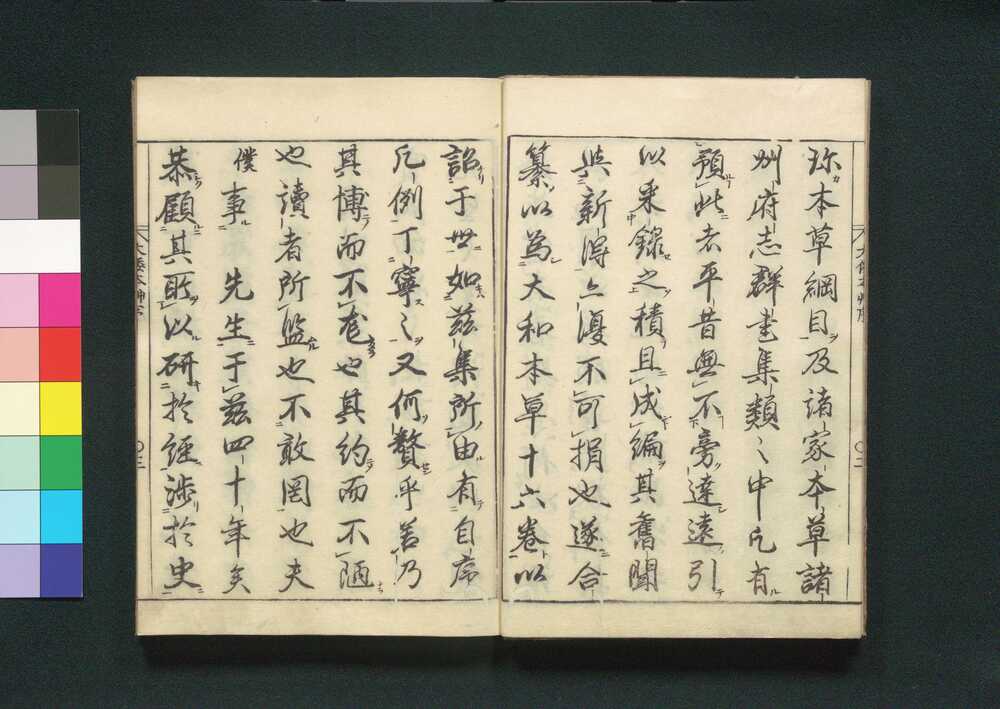 珎本草綱目及諸家本草諸
州府志群書集類之中凡有
預此者平昔無不旁達遠引
以采錄之積且成編其舊聞
與新得亦復不可捐也遂合
纂以為大和本草十六卷以
詔于世如茲集所由有自序
凡例丁寧之又何贅乎若乃
其博而不尨也其約而不陋
也讀者所監也不敢罔也夫
僕事先生于茲四十年矣
恭顧其所以研於經涉於史